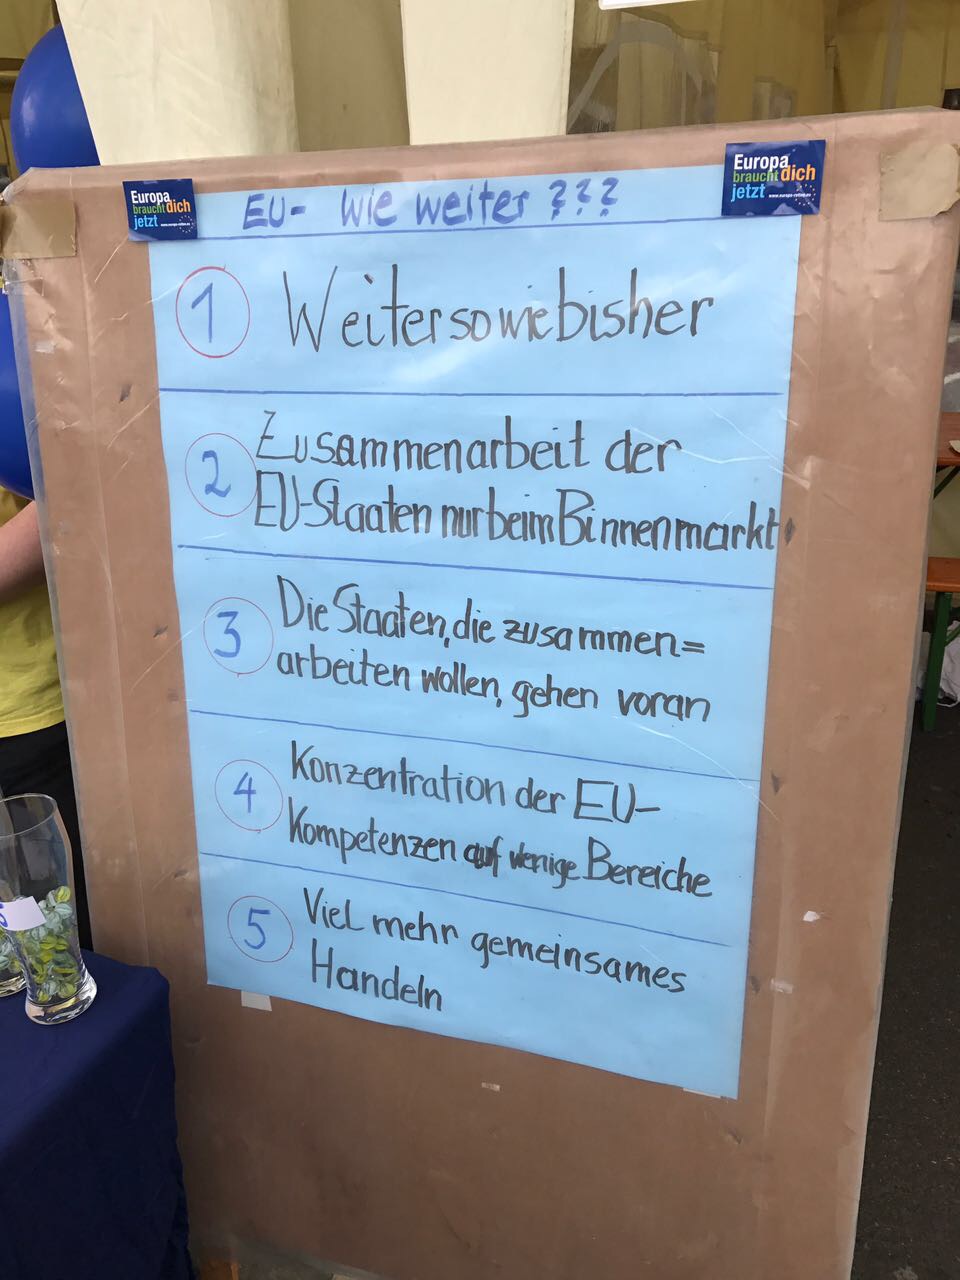 Europa
braucht dich
jetzt www.europa-retten.eu
EU- Wie weiter ???
Europa
braucht dich
jetzt www.europa-retten.eu
1 Weiter so wie bisher
2 Zusammenarbeit der
EU-Staaten nur beim Binnenmarkt
3 Die Staaten, die zusammen=
arbeiten wollen, gehen voran
4 Konzentration der EU-
Kompetenzen auf wenige Bereiche
5 Viel mehr gemeinsames
Handeln
5